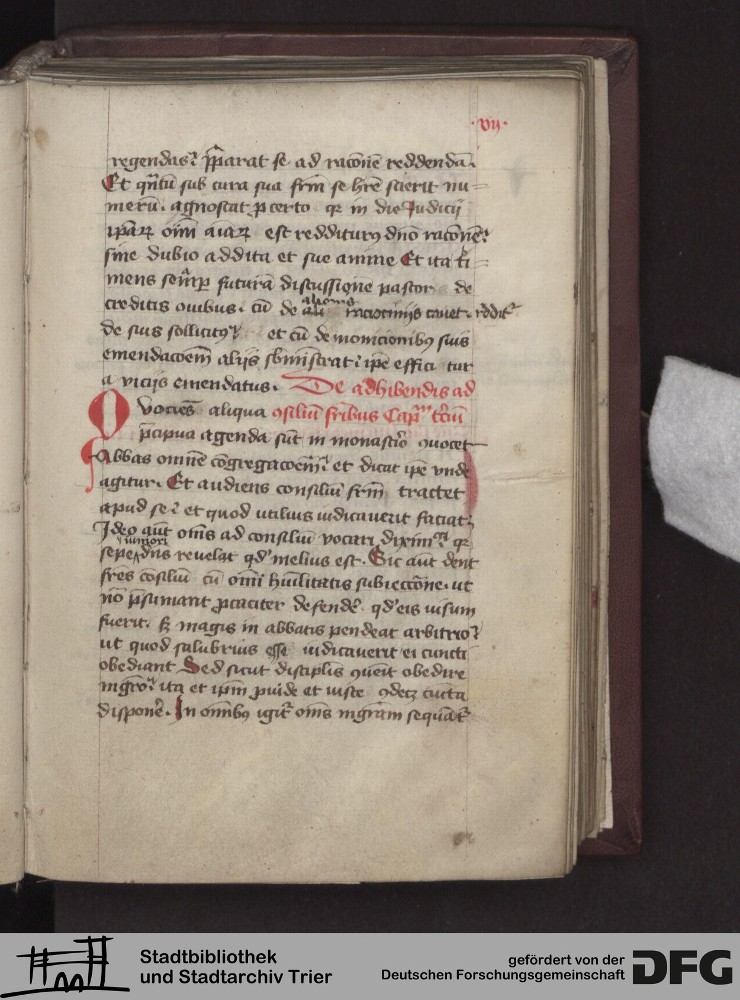 ·vij·
regendas? p̄parat se ad rac̄onē reddendā.
Et q̄ntū sub cura sua frm̄ se hr̄e scierit nu=
merū. agnoscat ꝓcerto qr in die Judicij
ip̄aꝝ oīm aīaꝝ est redditurꝰ dn̄o rac̄onē?
sine dubio addita et sue anime Et ita ti=
mens semꝑ futurā discussione pastor de
creditis ouibus. cū de alienis raciocinijs cauet. rddit᷑
de suis sollicitꝰ et cū de monicionibꝰ suis
emendac̄oem̄ alijs sb̄mīstrat? ip̄e effici tur
a vicijs emendatus. De adhibendis ad
Quocies aliqua ꝯsiliū fr̄ibus Cap̄m t̄ciū
p̄cipua agenda sūt in monast̄io ꝯuocet
Abbas omnē cōgregac̄oem̄? et dicat ip̄e vnde
agitur. Et audiens consiliū frm̄ tractet
apud se? et quod utilius iudicauerit faciat?
Ideo aūt om̄s ad consiliū vocari dixim᷑? qr
sepe iuniori dn̄s reuelat qd' melius est. Sic aūt dent
fr̄es cōsiliū cū om̄i hūilitatis subiecc̄one. ut
nō p̄sumant ꝓcaciter defendē. qd' eis uisum
fuerit. Sꝫ magis in abbatis pendeat arbitrio?
ut quod salubrius esse iudicauerit ei cuncti
obediant Sed sicut discip̄lis ꝯuēit obedire
mgr̄o? ita et ip̄m ꝓuide et iuste ꝯdecꝫ cūcta
disponē. In om̄ibꝰ igit᷑ om̄s mgr̄am sequāt᷑
Stadtbibliothek
und Stadtarchiv Trier
gefördert von der
Deutschen Forschungsgemeinschaft
DFG